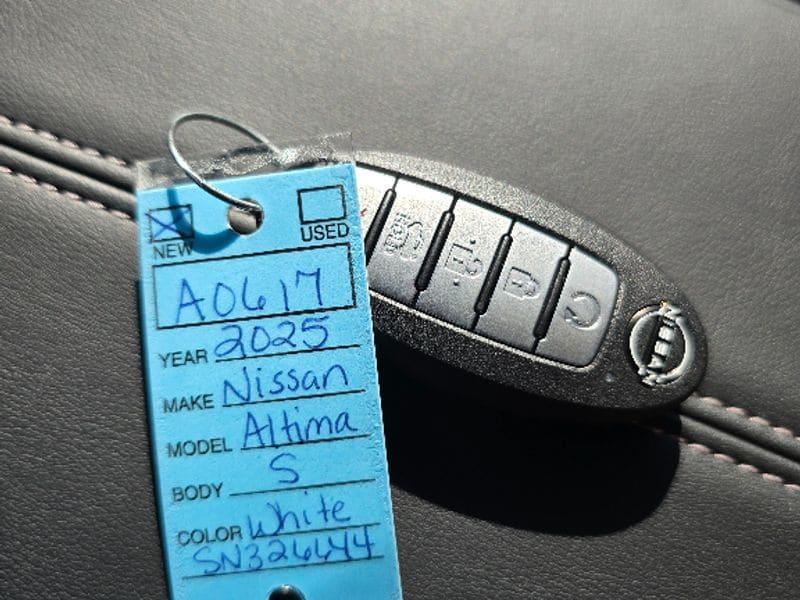 NEW USED
A0617
YEAR 2025
MAKE Nissan
MODEL Altima
BODY S
COLOR White
SN326644
NISSAN